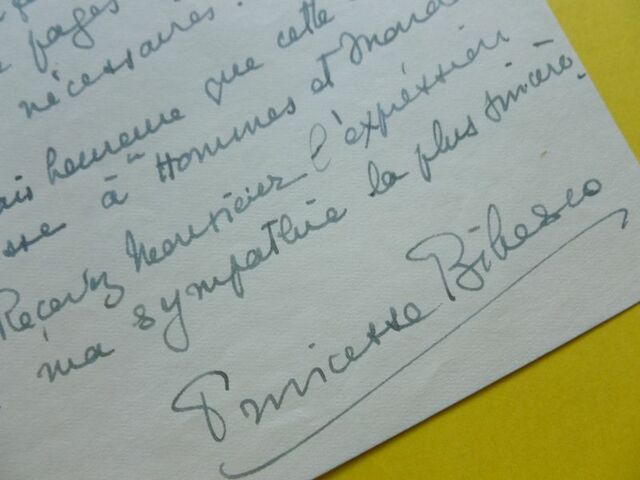 pages
nécessaires.
heureuse que cette
à "Hommes et Mond
Reçevez Monsieur l'expréssion
ma sympathie la plus sincère.
Princesse Bibesco